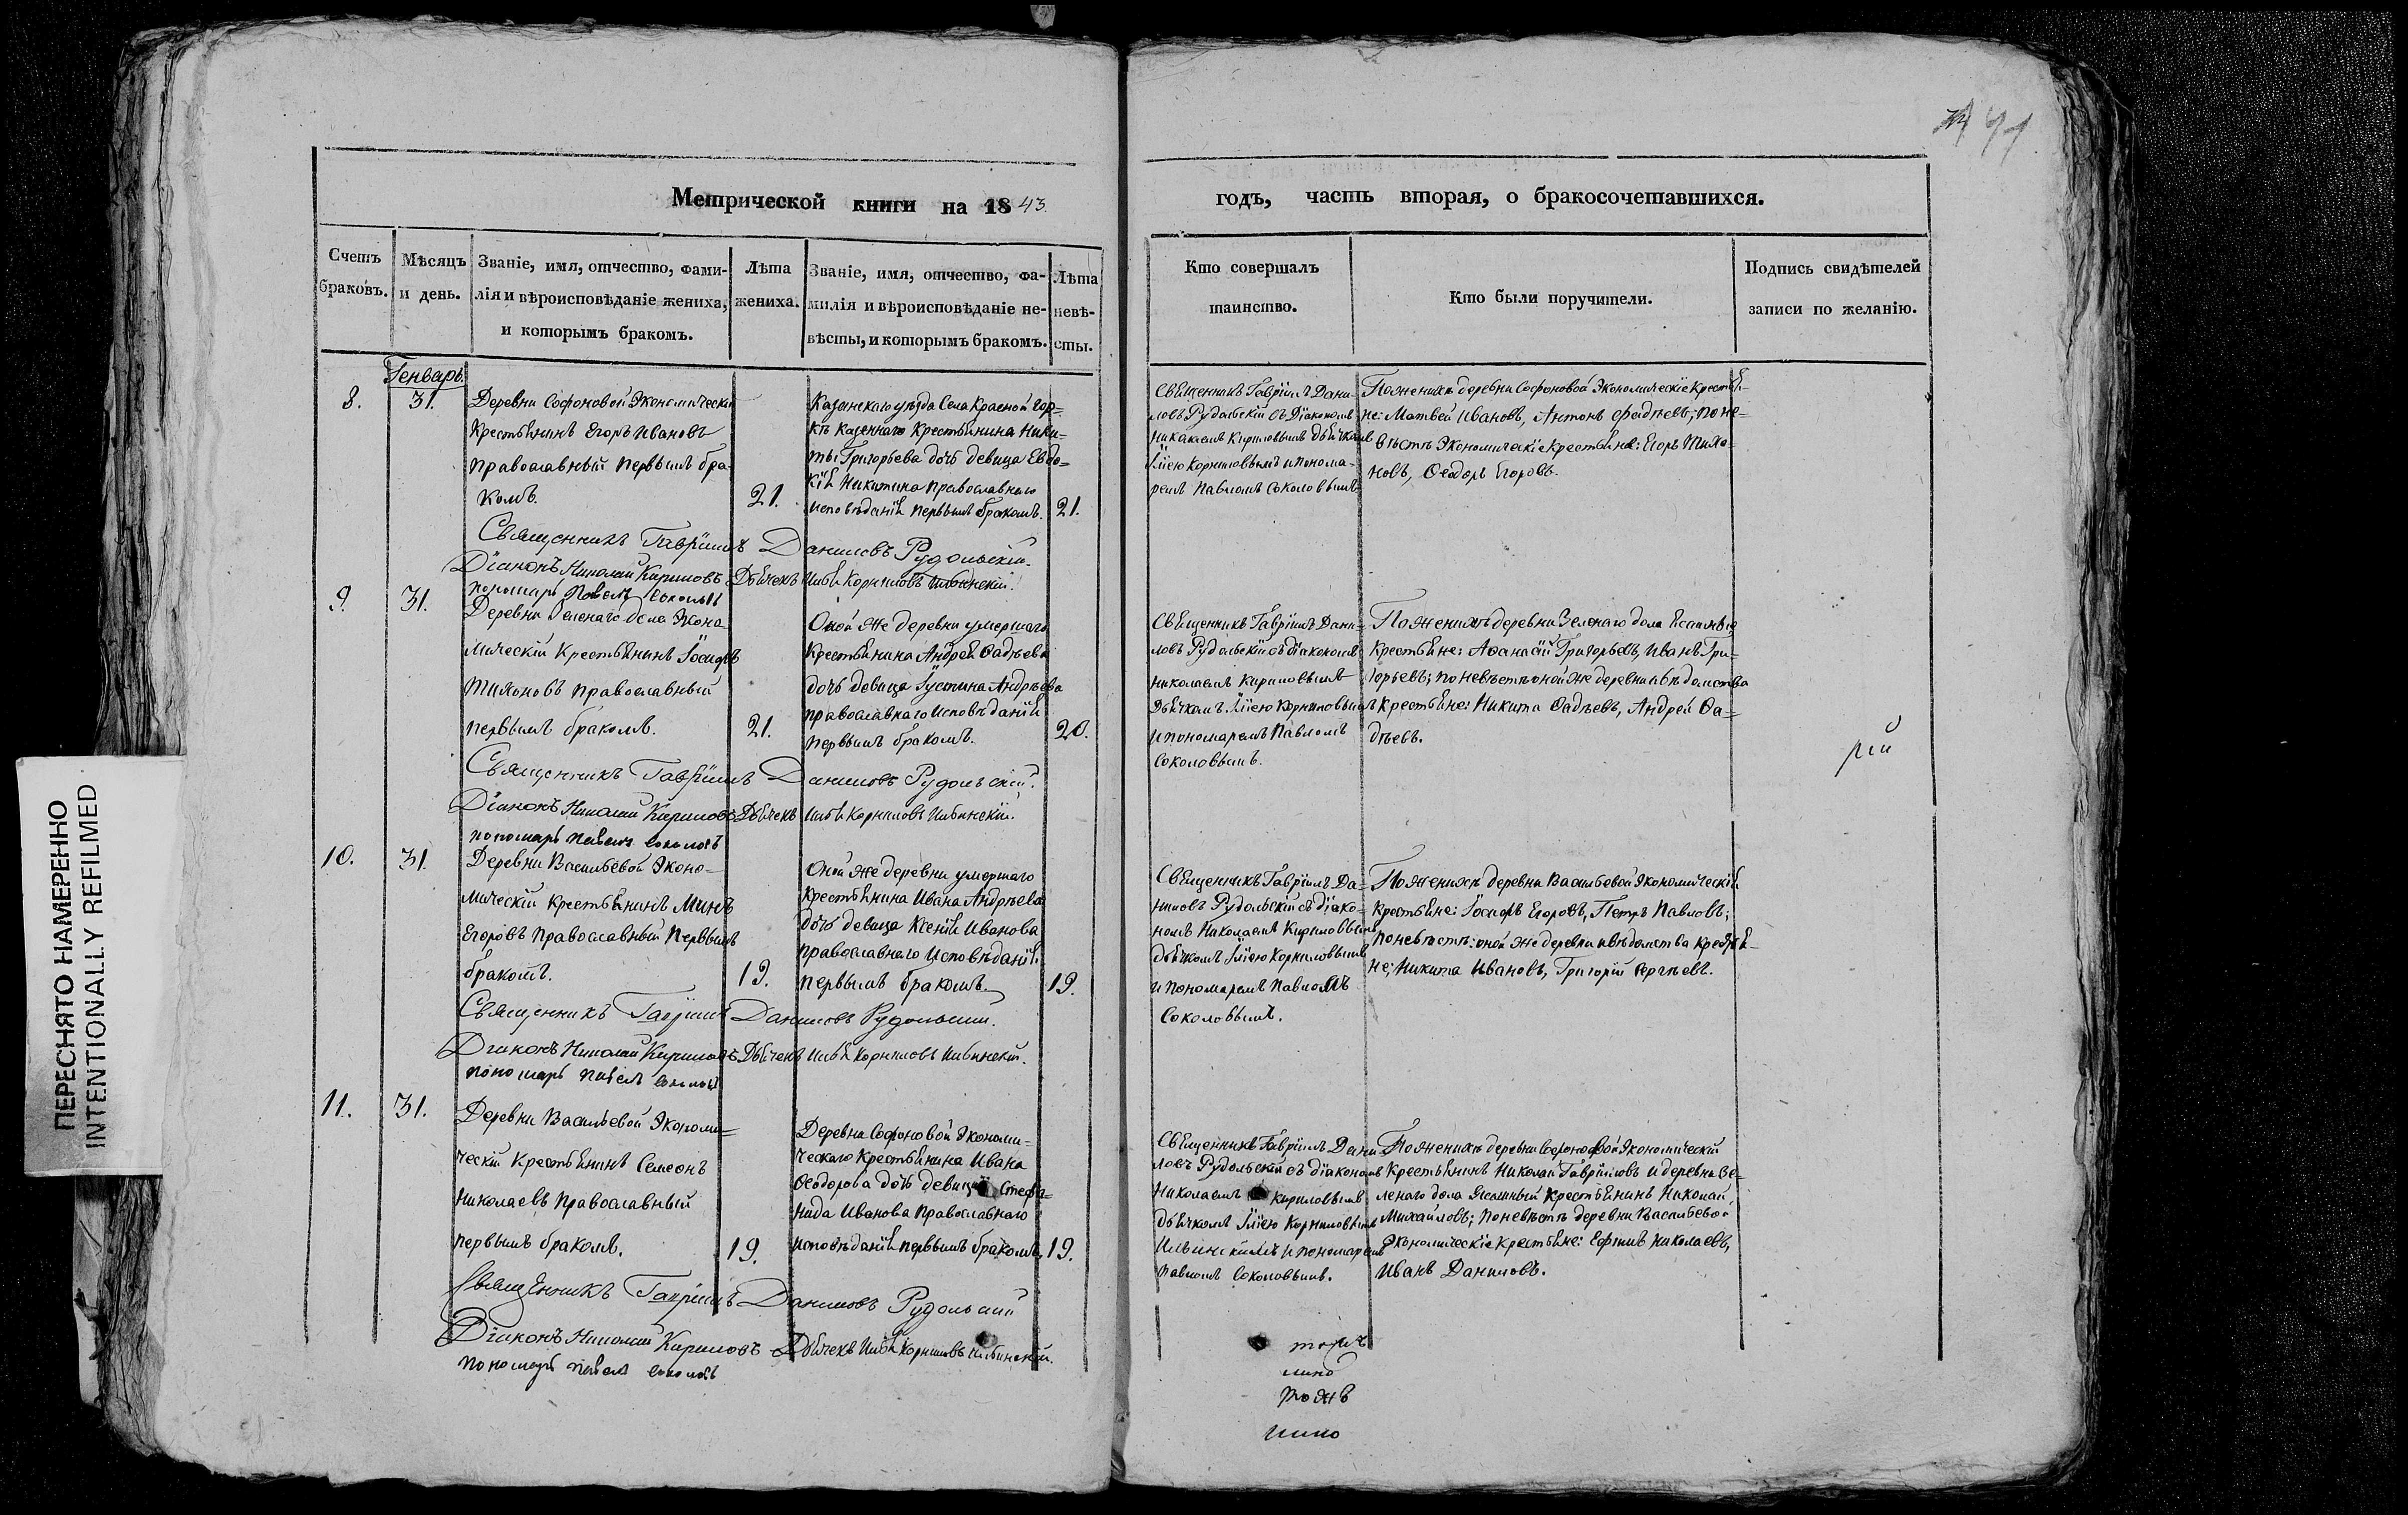 Метрической книги на 1843
годъ, часть вторая, о бракосочетавшихся.
Счетъ браковъ.
Мѣсяцъ и день.
Званіе, имя, отчество, фами-
лія и вѣроисповѣданіе жениха,
и которымъ бракомъ.
Лѣта жениха.
Званіе, имя, отчество, фа-
милія и вѣроисповѣданіе не-
вѣсты, и которымъ бракомъ.
Лѣта невѣ-
сты.
Кто совершалъ
таинство.
Кто были поручители.
Подпись свидѣтелей
записи по желанію.
Генварь.
8.
31.
Деревни Софоновой Экономическій
Крестьянинъ Егоръ Ивановъ
Православный первымъ бра-
комъ.
21.
Казанскаго уѣзда Села Красной Гор-
ки казеннаго Крестьянина Ники-
ты Григорьева дочь девица Евдо-
кія Никитина православнаго
исповѣданія первымъ бракомъ.
21.
Священникъ Гавріилъ Дани-
ловъ Рудольскій съ діакономъ
Николаемъ Кириловымъ дьячкомъ
Иліею Корниловымъ и понома-
ремъ Павломъ Соколовымъ
По женихѣ деревни Софоновой Экономическіе Крестья-
не: Матвей Ивановъ, Антонъ Фадѣевъ; по не-
вѣстѣ Экономическіе Крестьяне: Егоръ Тихо-
новъ, Ѳеодоръ Егоровъ.
Священникъ Гавріилъ Даниловъ Рудольскій.
Діаконъ Николай Кириловъ Дьячекъ Илья Корниловъ Ильинскій.
пономарь Павелъ Соколовъ
9.
31.
Деревни Зеленаго дола Эконо-
мическій Крестьянинъ Іосифъ
Тихоновъ православный
первымъ бракомъ.
21.
Оной же деревни умершаго
Крестьянина Андрея Фадѣева
дочь девица Іустина Андрѣева
православнаго исповѣданія
первымъ бракомъ.
20.
Священникъ Гавріилъ Дани-
ловъ Рудольскій съ діакономъ
Николаемъ Кириловымъ
Дьячкомъ Иліею Корниловымъ
и пономаремъ Павломъ
Соколовымъ.
По женихѣ деревни Зеленаго дола
Крестьяне: Аѳанасій Григорьевъ, Иванъ Гри-
горьевъ; по невѣстѣ оной же деревни и вѣдомства
Крестьяне: Никита Фадѣевъ, Андрей Фа-
дѣевъ.
рій
Священникъ Гавріилъ Даниловъ Рудольскій.
Діаконъ Николай Кириловъ Дьячекъ Илья Корниловъ Ильинскій.
пономарь Павелъ Соколовъ
10.
31.
Деревни Васильевой Эконо-
мическій Крестьянинъ Минъ
Егоровъ Православный первымъ
бракомъ.
19.
Оной же деревни умершаго
Крестьянина Ивана Андрѣева
дочь девица Ксенія Иванова
православнаго исповѣданія
первымъ бракомъ.
19.
Священникъ Гавріилъ Да-
ниловъ Рудольскій съ діако-
номъ Николаемъ Кириловымъ
дьячкомъ Иліею Корниловымъ
и пономаремъ Павломъ
Соколовымъ.
По женихѣ деревни Васильевой Экономическіи
Крестьяне: Іосифъ Егоровъ, Петръ Павловъ;
по невѣстѣ: оной же деревни и вѣдомства Крестья-
не; Никита Ивановъ, Григорій Сергѣевъ.
Священникъ Гавріилъ Даниловъ Рудольскій.
Діаконъ Николай Кириловъ Дьячекъ Илья Корниловъ Ильинскій.
пономарь Павелъ Соколовъ
11.
31.
Деревни Васильевой Экономи-
ческій Крестьянинъ Семеонъ
Николаевъ Православный
первымъ бракомъ.
19.
Деревни Софоновой Экономи-
ческаго Крестьянина Ивана
Ѳеодорова дочь девица Стефа-
нида Иванова Православнаго
исповѣданія первымъ бракомъ
19.
Священникъ Гавріилъ Дани-
ловъ Рудольскій съ діакономъ
Николаемъ Кириловымъ
дьячкомъ Иліею Корниловымъ
Ильинскимъ и пономаремъ
Павломъ Соколовымъ.
По женихѣ деревни Софоновой Экономическій
Крестьянинъ Николай Гавриловъ и деревни Зе-
ленаго дола Крестьянинъ Николай
Михайловъ; по невѣстѣ деревни Васильевой
Экономическіе Крестьяне: Ефимъ Николаевъ,
Иванъ Даниловъ.
Священникъ Гавріилъ Даниловъ Рудольскій
Діаконъ Николай Кириловъ Дьячекъ Илья Корниловъ Ильинскій.
пономарь Павелъ Соколовъ
ПЕРЕСНЯТО НАМЕРЕННО
INTENTIONALLY REFILMED